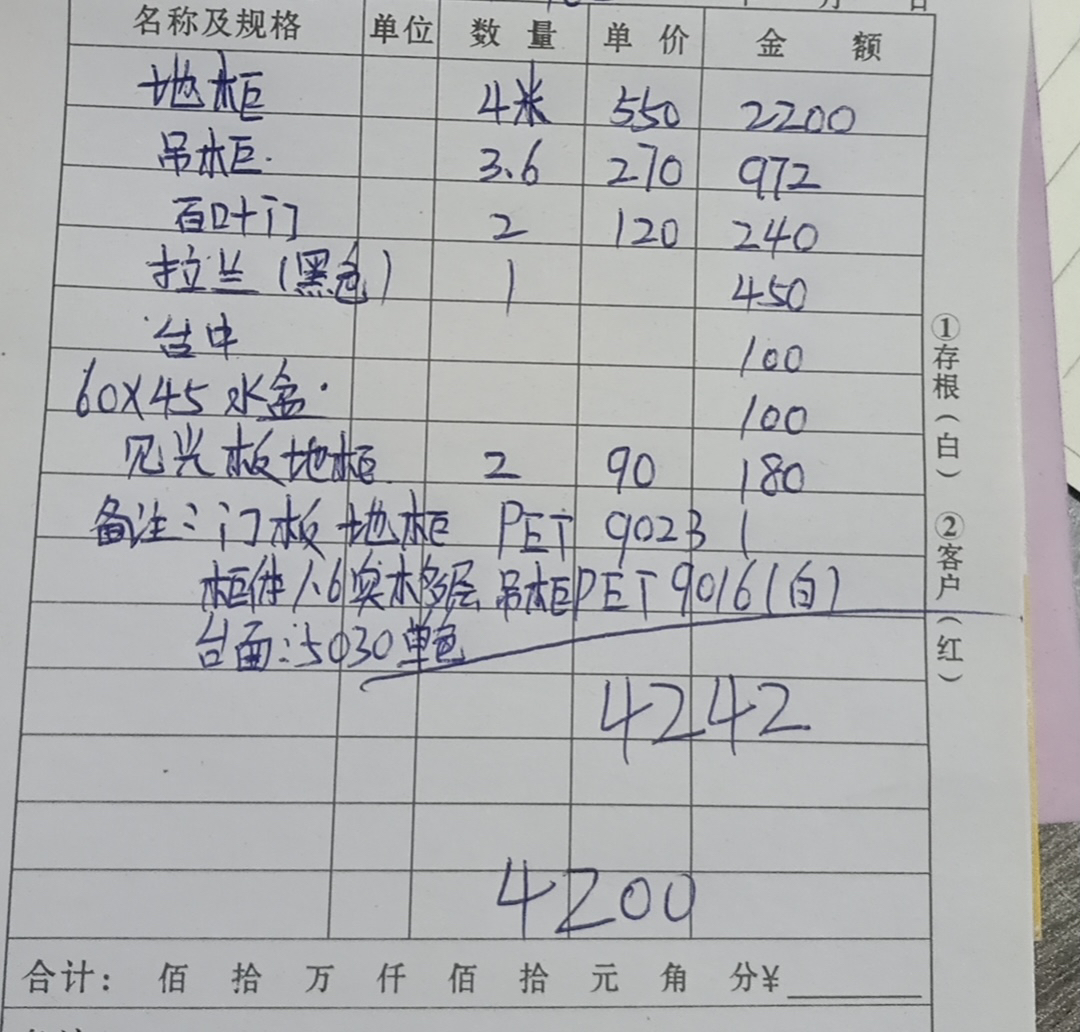 月 日
名称及规格 单位 数量 单价 金额
地柜 4米 550 2200
吊柜. 3.6 270 972
百叶门 2 120 240
拉兰（黑色） 1 450
台中 100
60X45水盆. 100
见光板地柜 2 90 180
备注：门板地柜 PET 9023 (
柜体1.6实木多层 吊柜PET9016(白)
台面：5030单色
4242
4200
合计： 佰 拾 万 仟 佰 拾 元 角 分¥
①存根（白） ②客户（红）